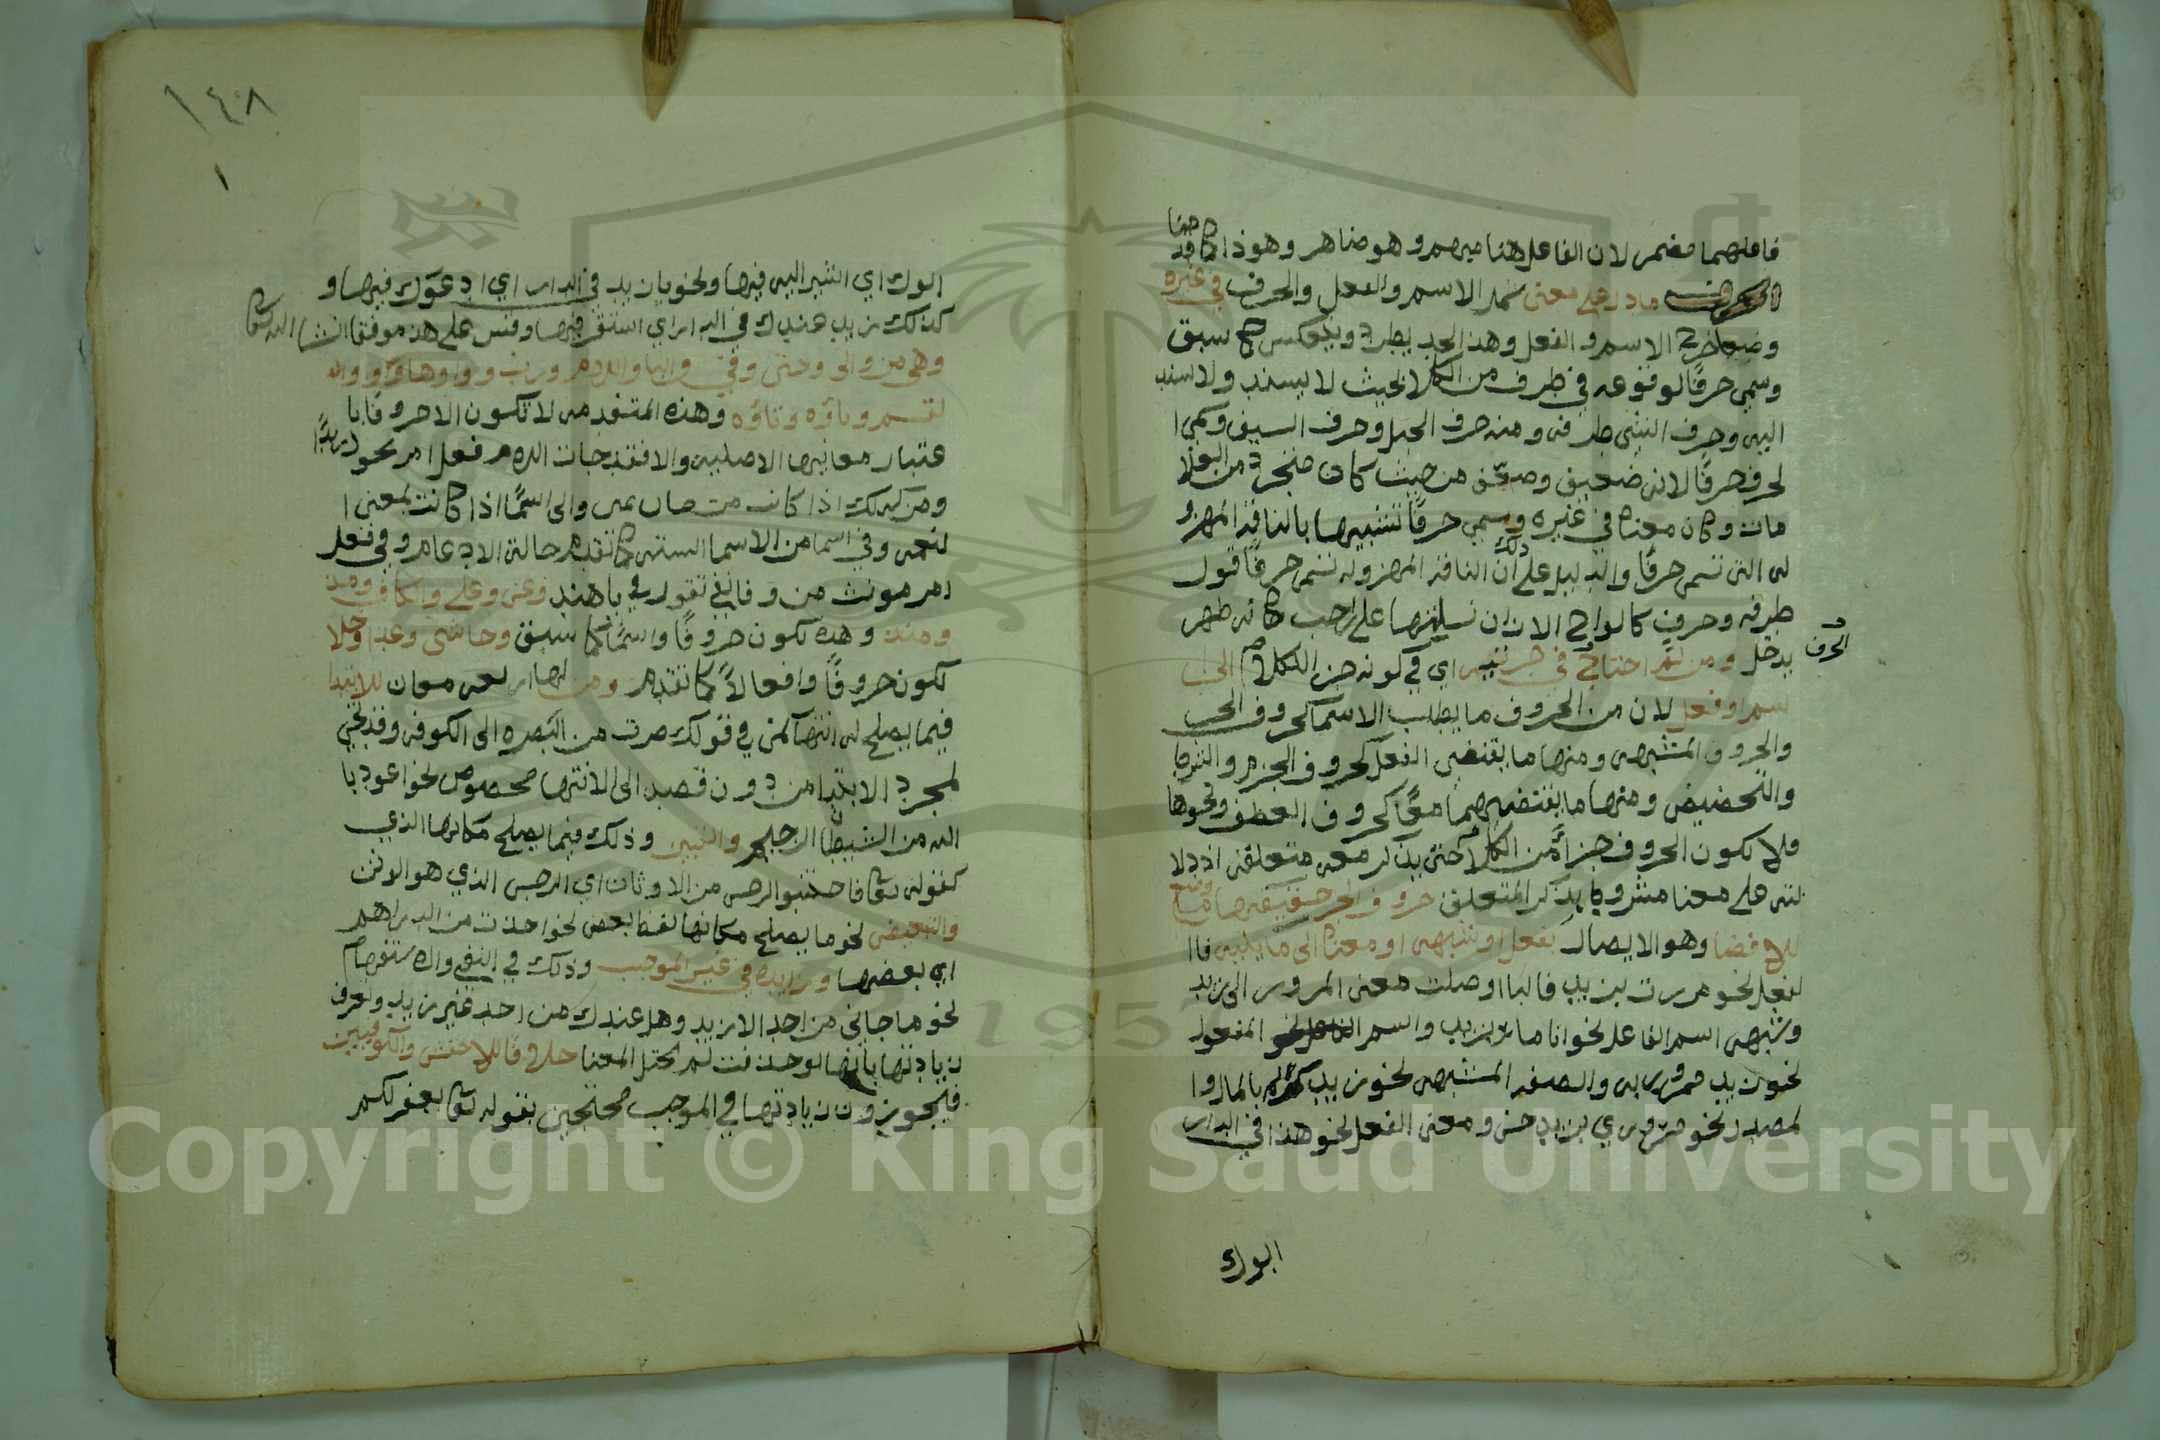 فاعلهما مضمر لان الفاعل هنا مبهم وهو ظاهر وهوذا كما قد
ما دل على معنى شمل الاسم والفعل والحرف في غيره
الاسم والفعل وهذا الحد يطرد وينعكس كما سبق
وسمي حرفًا لوقوعه في طرف من الكلام بحيث لا يسند ولا يسند
اليه وحرف الشي طرفه ومنه حرف الجبل وحرف السيف وسمي ا
لحرف حرفًا لانه ضعيف من حيث كان منجرد من العلا
مات وكان معناه في غيره وسمي حرفًا تشبيها بالناقة المهزو
له التي تسمى حرفًا والدليل على ذلك ان الناقة المهزوله تسمى حرفًا قول
طرفه وحرف كالواح الاران نساتها على لاحب كانه ظهر
الحرف
يدخل ومن ثم احتاج في جزئيته اي في كونه جز الكلام الى ا
سم او فعل لان من الحروف ما يطلب الاسم كحروف الجر
والحروف المشبهه ومنها ما يقتضي الفعل كحروف الجزم والشرط
والتحضيض ومنها ما يقتضيهما معًا كحروف العطف ونحوها
فلا تكون الحروف جزأ من الكلام حتى يذكر معه متعلقه اذ دلا
لته على معنا مشروط بذكر المتعلق حروف الجر حقيقتها ما وضع
للافضا وهو الايصال بفعل او شبهه او معناه الى ما يليه فاا
لفعل نحو مررت بزيد فالبا اوصلت معنى المرور الى زيد
وشبهه اسم الفاعل نحو انا مار بزيد واسم المفعول
نحو زيد ممرور به والصفه المشبهه نحو زيد بالمال وا
لمصدر نحو مروري بزيد حسن ومعنى الفعل نحو هذا في الدار
ابوك
١٤٨
١
ابوك اي اشير اليه فيها ونحو يا زيد في الدار اي ادعوك فيها و
كذلك زيد عندك في الدار اي استقر فيها وقس على هذ موفقا انشا الله تعا
وهي من والى وحتى وفي والبا واللام ورب وواوها وواو ال
قسم وباؤه وتاؤه وهذه المتقدمه لا تكون الا حروفًا با
عتبار معانيها الاصليه والا فقد جات اللام فعل امر نحو
ومن كذلك اذا كانت من مان يمين والى اسمًا اذا كانت بمعنى ا
لنعمه وفي اسما من الاسما السته كما تقدم حالة الادغام وفي فعل
امر مونث من وفا يفي تقول في يا هند وعن وعلى والكاف ومذ
ومنذ وهذه تكون حروفًا واسمًا كما سبق وحاشى وعدا وخلا
تكون حروفًا وافعالاً كما تقدم ومن لها اربعه معان للابتدا
فيما يصلح له انتها كمن في قولك سرت من البصره الى الكوفه وقد تجي
لمجرد الابتدا من دون قصد الى الانتها مخصوص نحو اعوذ با
الله من الشيطان الرجيم والتبيين وذلك فيما يصلح مكانها الذي
كقوله تعا فاجتنبوا الرجس من الاوثان اي الرجس الذي هو الوثن
والتبعيض نحو ما يصلح مكانها لفظ بعض نحو اخذت من الدراهم
اي بعضها وزايده في غير الموجب وذلك في النفي والاستفهام
نحو ما جاني من احد الا زيد وهل عندك من احد غير زيد وتعرف
زيادتها بانها لو حذفت لم يختل المعنا خلافًا للاخفش والكوفيين
فيجوزون زيادتها في الموجب محتجين بقوله تعا يغفر لكم